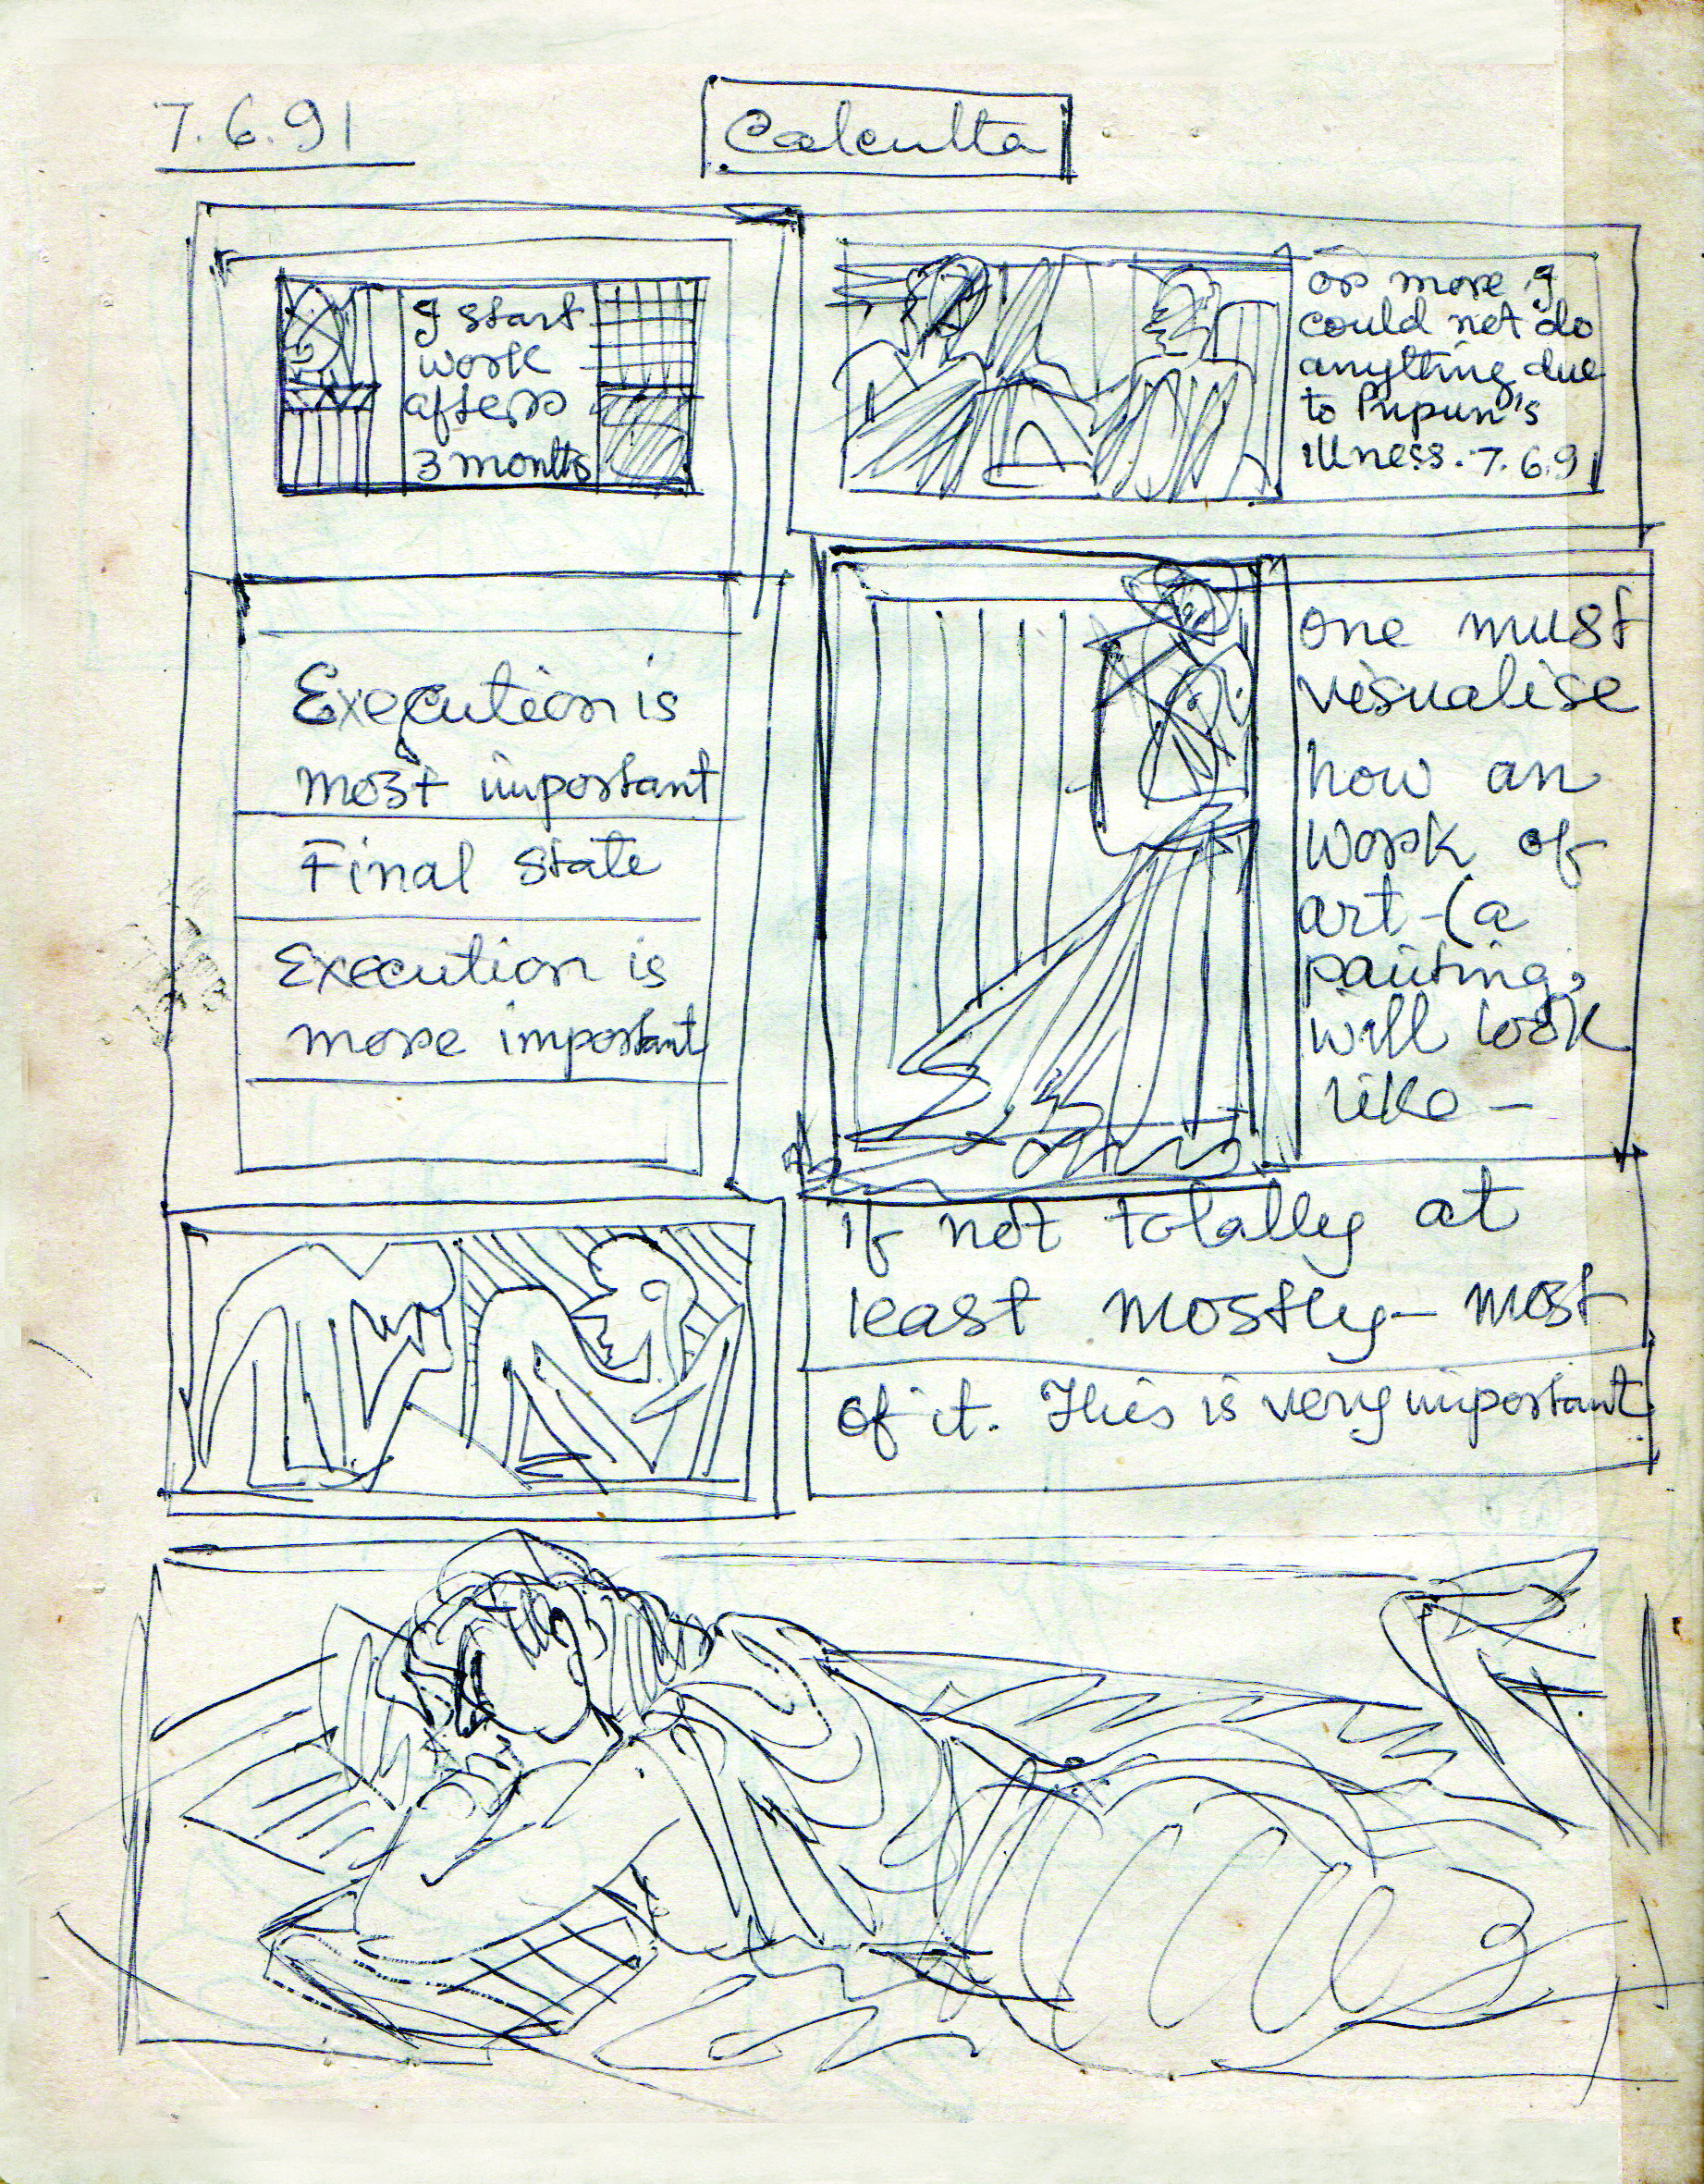 7.6.91
Calcutta
I start
work
after
3 months
or more I
could not do
anything due
to Pupun's
illness. 7.6.91
Execution is
most important
Final state
Execution is
more important
one must
visualise
how an
work of
art - (a
painting,
will look
like -
if not totally at
least mostly - most
of it. This is very important